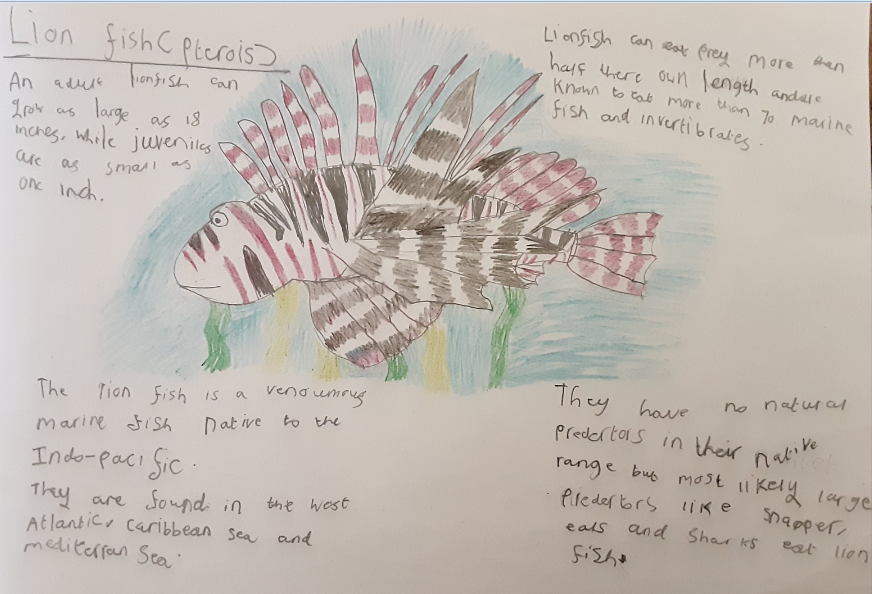 Lion fish (pterois)
An adult lionfish can
grow as large as 18
inches, while juveniles
are as small as
one inch.
Lionfish can eat prey more than
half there own length and are
Known to eat more than 70 marine
fish and invertibrates.
The lion fish is a venoumous
marine fish native to the
Indo-pacific.
They are found in the west
Atlantic, caribbean sea and
mediterran sea.
They have no natural
predertors in their native
range but most likely large
Predertors like snapper,
eals and sharks eat lion
fish.